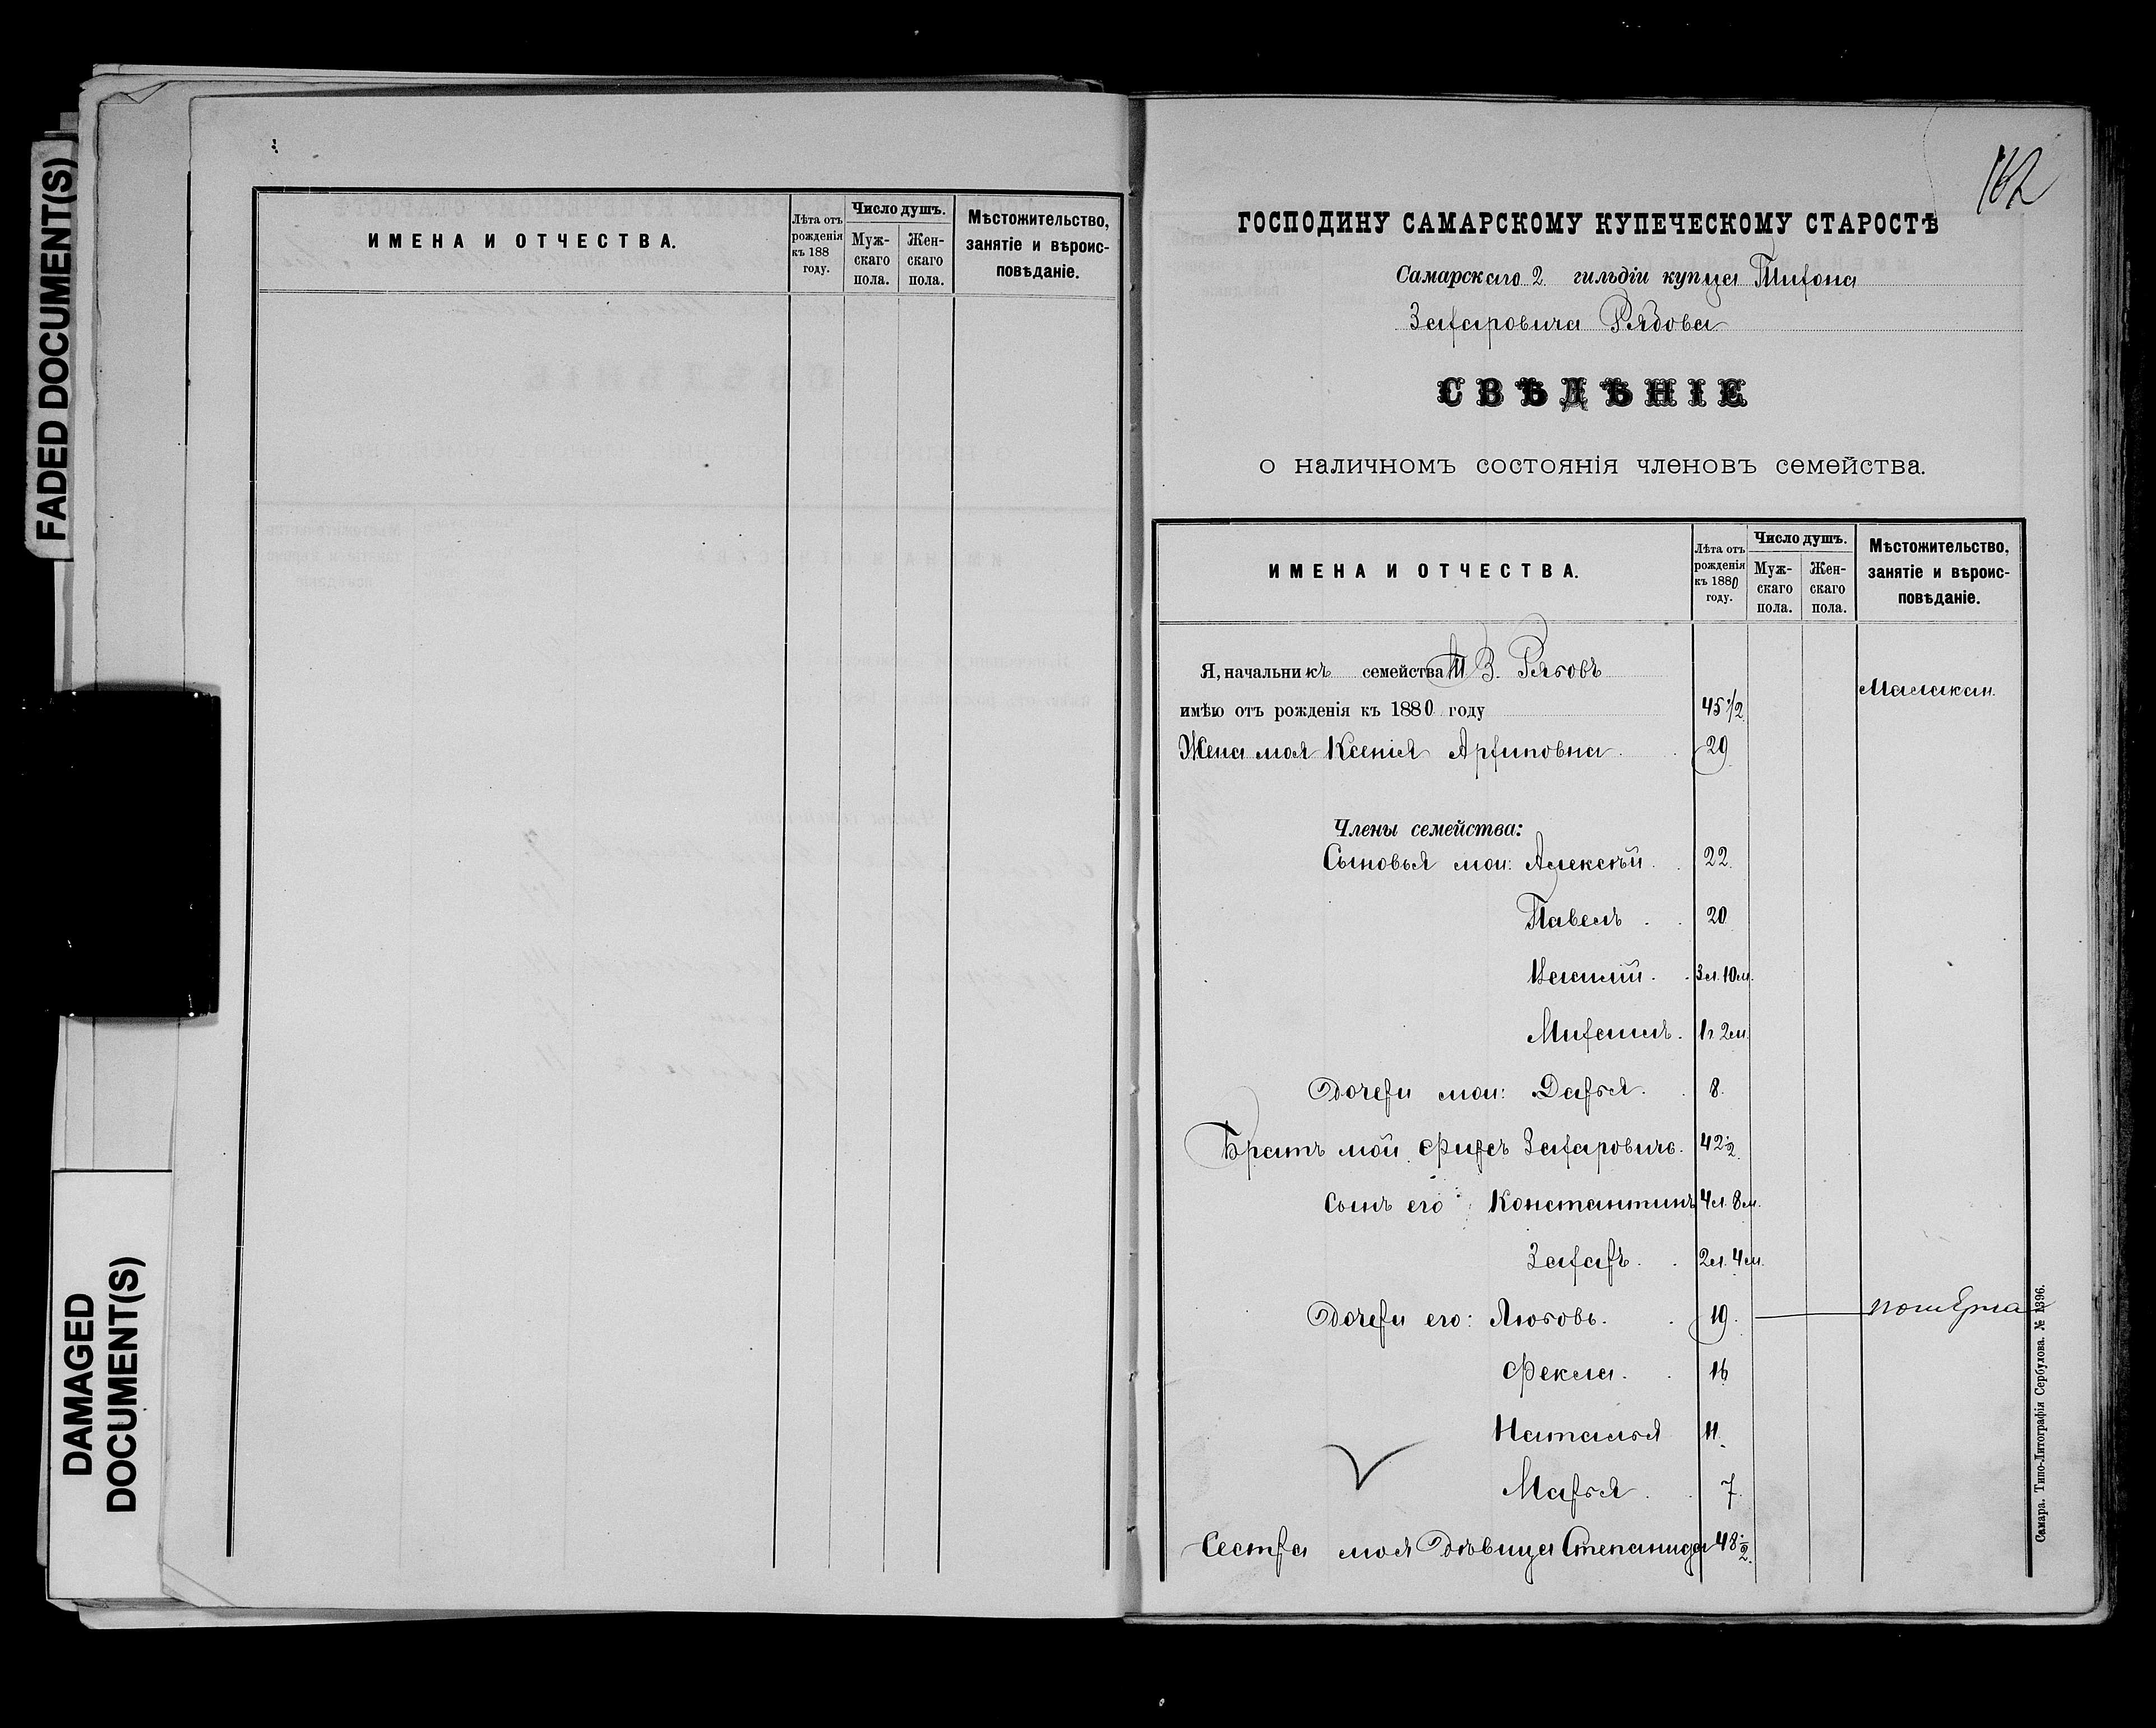 FADED DOCUMENT(S)
DAMAGED
DOCUMENT(S)
ИМЕНА И ОТЧЕСТВА.
Лѣта отъ рожденія къ 188 году.
Число душъ.
Мужскаго пола.
Женскаго пола.
Мѣстожительство, занятіе и вѣроисповѣданіе.
162
ГОСПОДИНУ САМАРСКОМУ КУПЕЧЕСКОМУ СТАРОСТѢ
Самарскаго 2 гильдіи купца Тихона
Захаровича Рябова
СВѢДѢНІЕ
о наличномъ состоянія членовъ семейства.
ИМЕНА И ОТЧЕСТВА.
Лѣта отъ рожденія къ 1880 году.
Число душъ.
Мужскаго пола.
Женскаго пола.
Мѣстожительство, занятіе и вѣроисповѣданіе.
Я, начальникъ семейства Т. З. Рябовъ
Малакан.
имѣю отъ рожденія къ 1880 году 45 1/2
Жена моя Ксенія Архиповна 29
Члены семейства:
Сыновья мои: Алексѣй 22
Павелъ 20
Василій 3л. 10м.
Михаилъ 1г. 2м.
Дочери мои: Дарья 8.
Братъ мой Захаровичъ. 42 1/2
Сынъ его: Константинъ 4л. 8м.
Захаръ 2л. 4м.
Дочери его: Любовь. 19. помѣрла
Фекла. 16
Наталья 11.
Марья 7.
Сестра моя дѣвица Степанида 48 1/2.
Самара. Типо-Литографія Сербулова. № 1396.